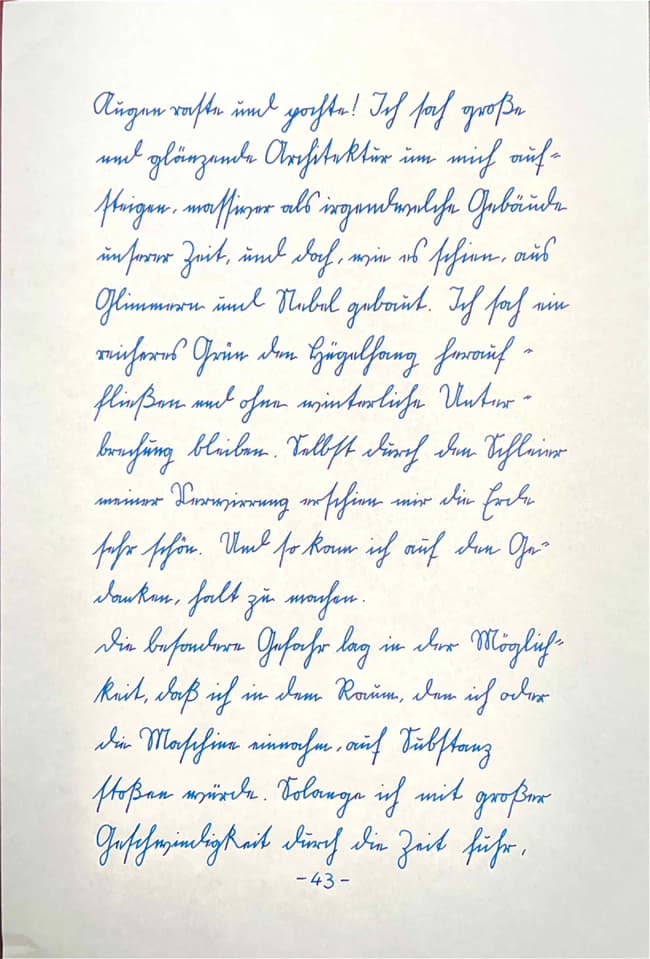 Augen raste und pochte! Ich sah große
und glänzende Architektur um mich auf-
steigen, massiver als irgendwelche Gebäude
unserer Zeit, und doch, wie es schien, aus
Glimmern und Nebel gebaut. Ich sah ein
reicheres Grün den Hügelhang herauf-
fließen und ohne winterliche Unter-
brechung bleiben. Selbst durch den Schleier
meiner Verwirrung erschien mir die Erde
sehr schön. Und so kam ich auf den Ge-
danken, halt zu machen.
Die besondere Gefahr lag in der Möglich-
keit, daß ich in dem Raum, den ich oder
die Maschine einnahm, auf Substanz
stoßen würde. Solange ich mit großer
Geschwindigkeit durch die Zeit fuhr,
-43-